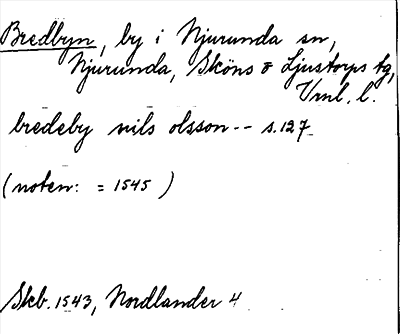 Bredbyn, by i Njurunda sn,
Njurunda, Sköns o Ljustorps tg,
Vnl. l.
bredeby nils olsson -- s. 127.
(noten: = 1545)
Skb. 1543, Nordlander 4